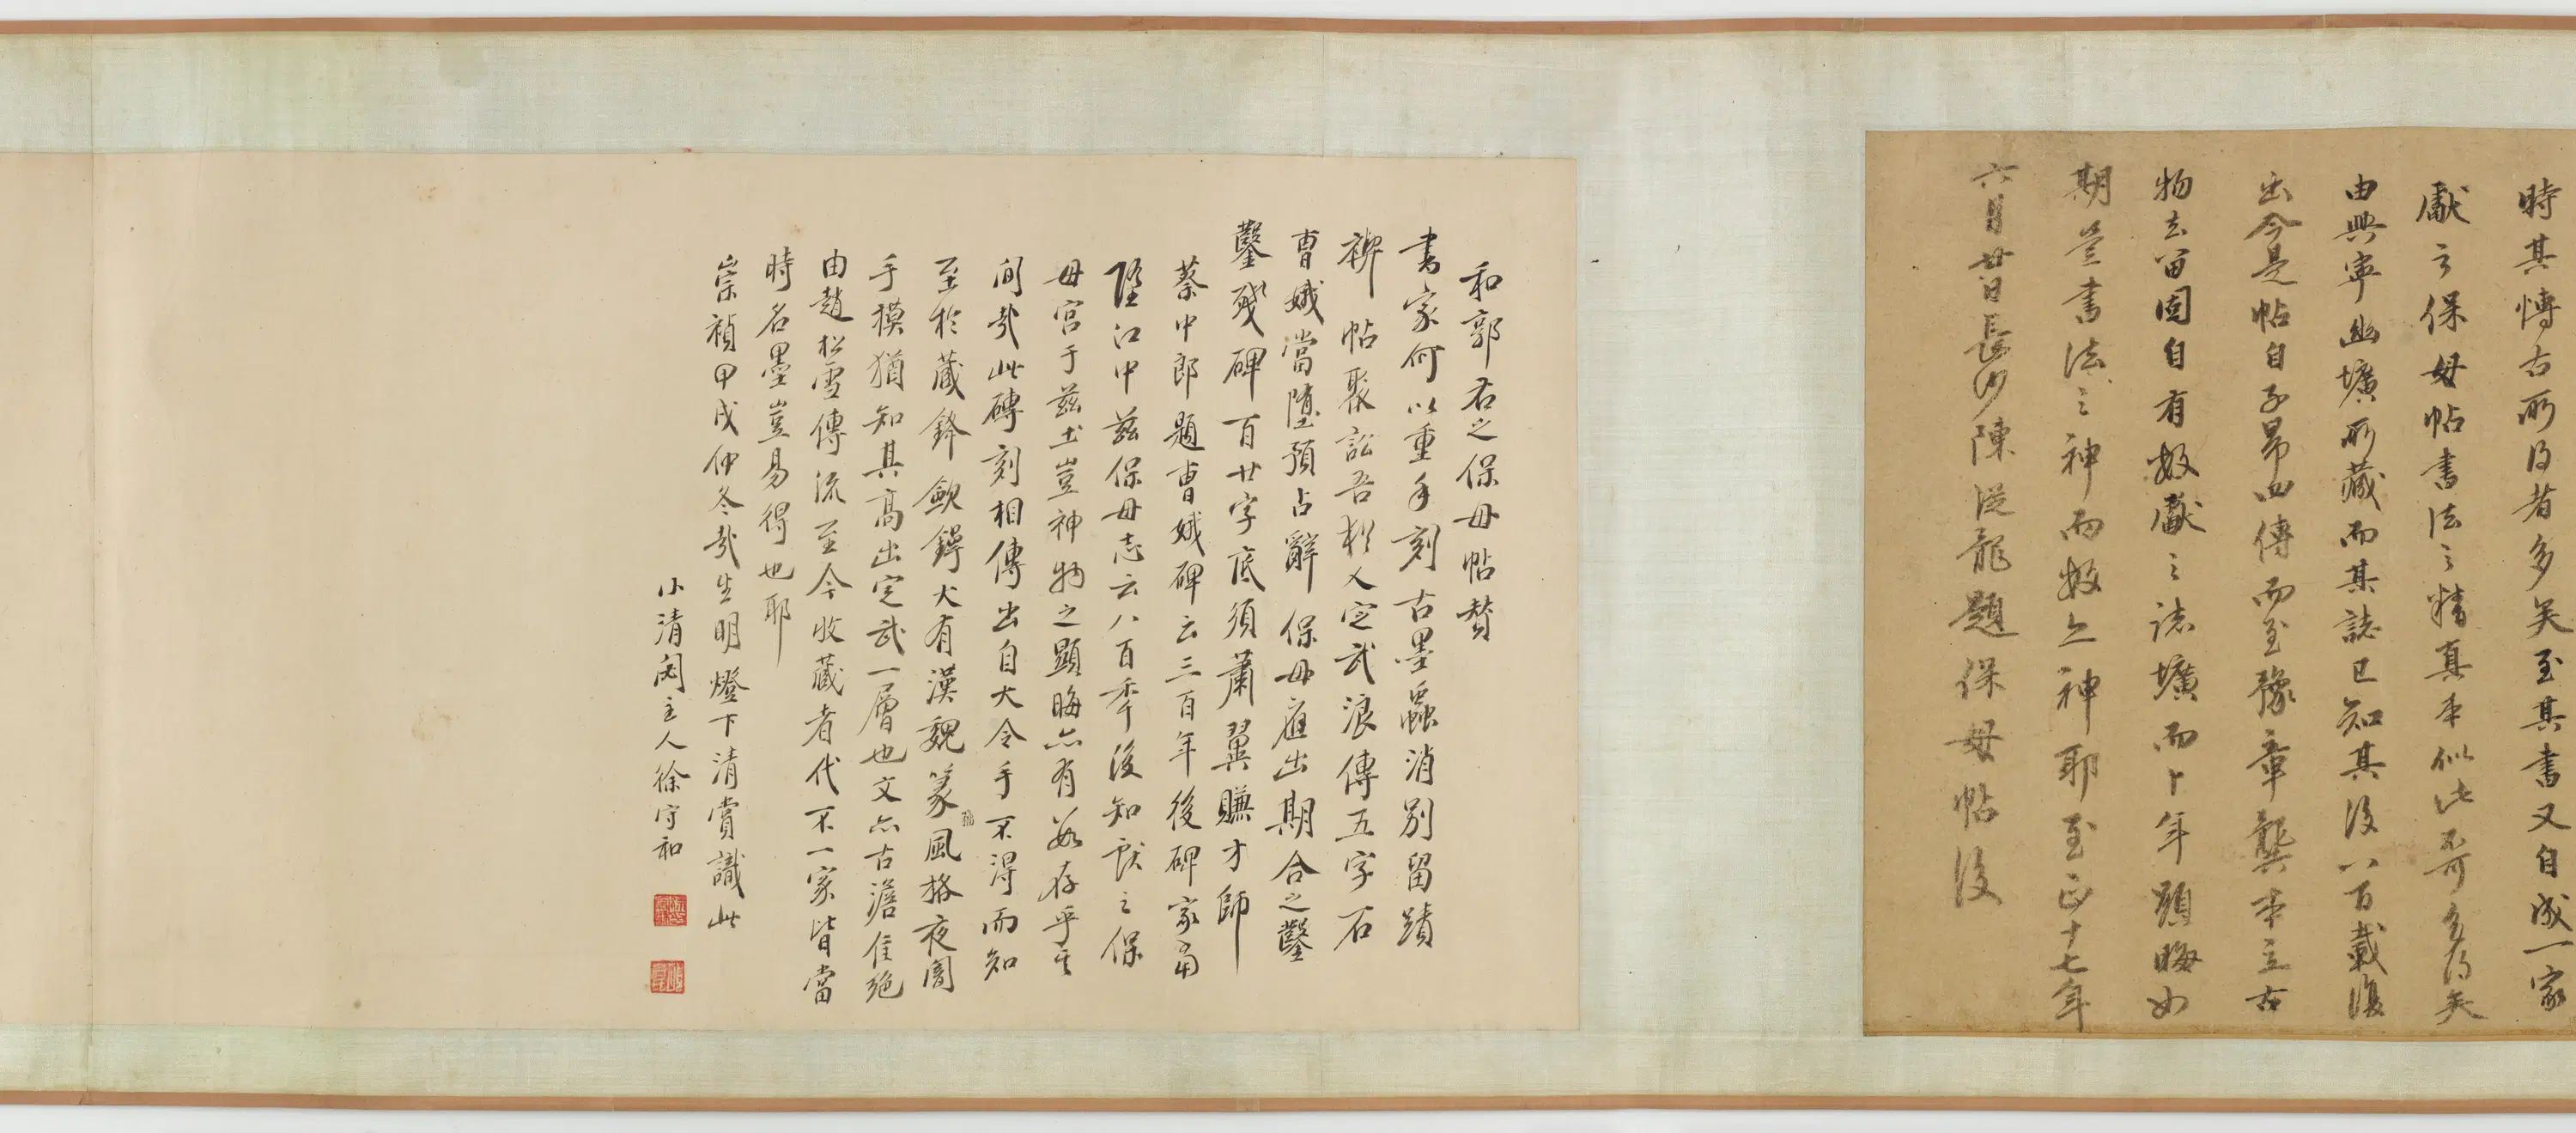 時其慱古所得者多矣至其書又自成一家
獻之保母帖書法之精真本似此哥多得矣
由興寧幽壙所藏而其誌已知其後八百載復
出今是帖自子昂四傳而至豫章龔本立古
物去留固自有數獻之誌壙而卜年顯晦如
期豈書法之神而數之神耶至正十七年
六月廿日長沙陳從龍題保母帖後
和郭右之保母帖贊
書家何以重手刻古墨蟲消別留蹟
禊帖聚訟吾猶人定武浪傳五字石
曹娥當墮預占辭保母應出期合之鑿
鑿殘碑百廿字底須蕭翼賺才師
蔡中郎題曹娥碑云三百年後碑冢當
墮江中茲保母志云八百季後知獻之保
母宮于茲土豈神物之顯晦亦有數存乎其
間哉此磚刻相傳出自大令手不得而知
至於藏鋒歛鍔大有漢魏篆風格夜闇
手摸猶知其高出定武一層也文亦古澹隹絕
由趙松雪傳流至今收藏者代不一家皆當
時名墨豈易得也耶
崇禎甲戌仲冬哉生明燈下清賞識此
小清閟主人徐守和